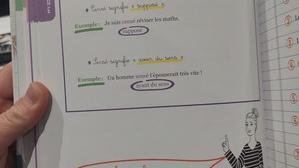 • Censé signifie « supposé ».
Exemple : Je suis censé réviser les maths.
supposé
• Sensé signifie « avoir du sens ».
Exemple : Un homme sensé l'épouserait très vite !
ayant du sens